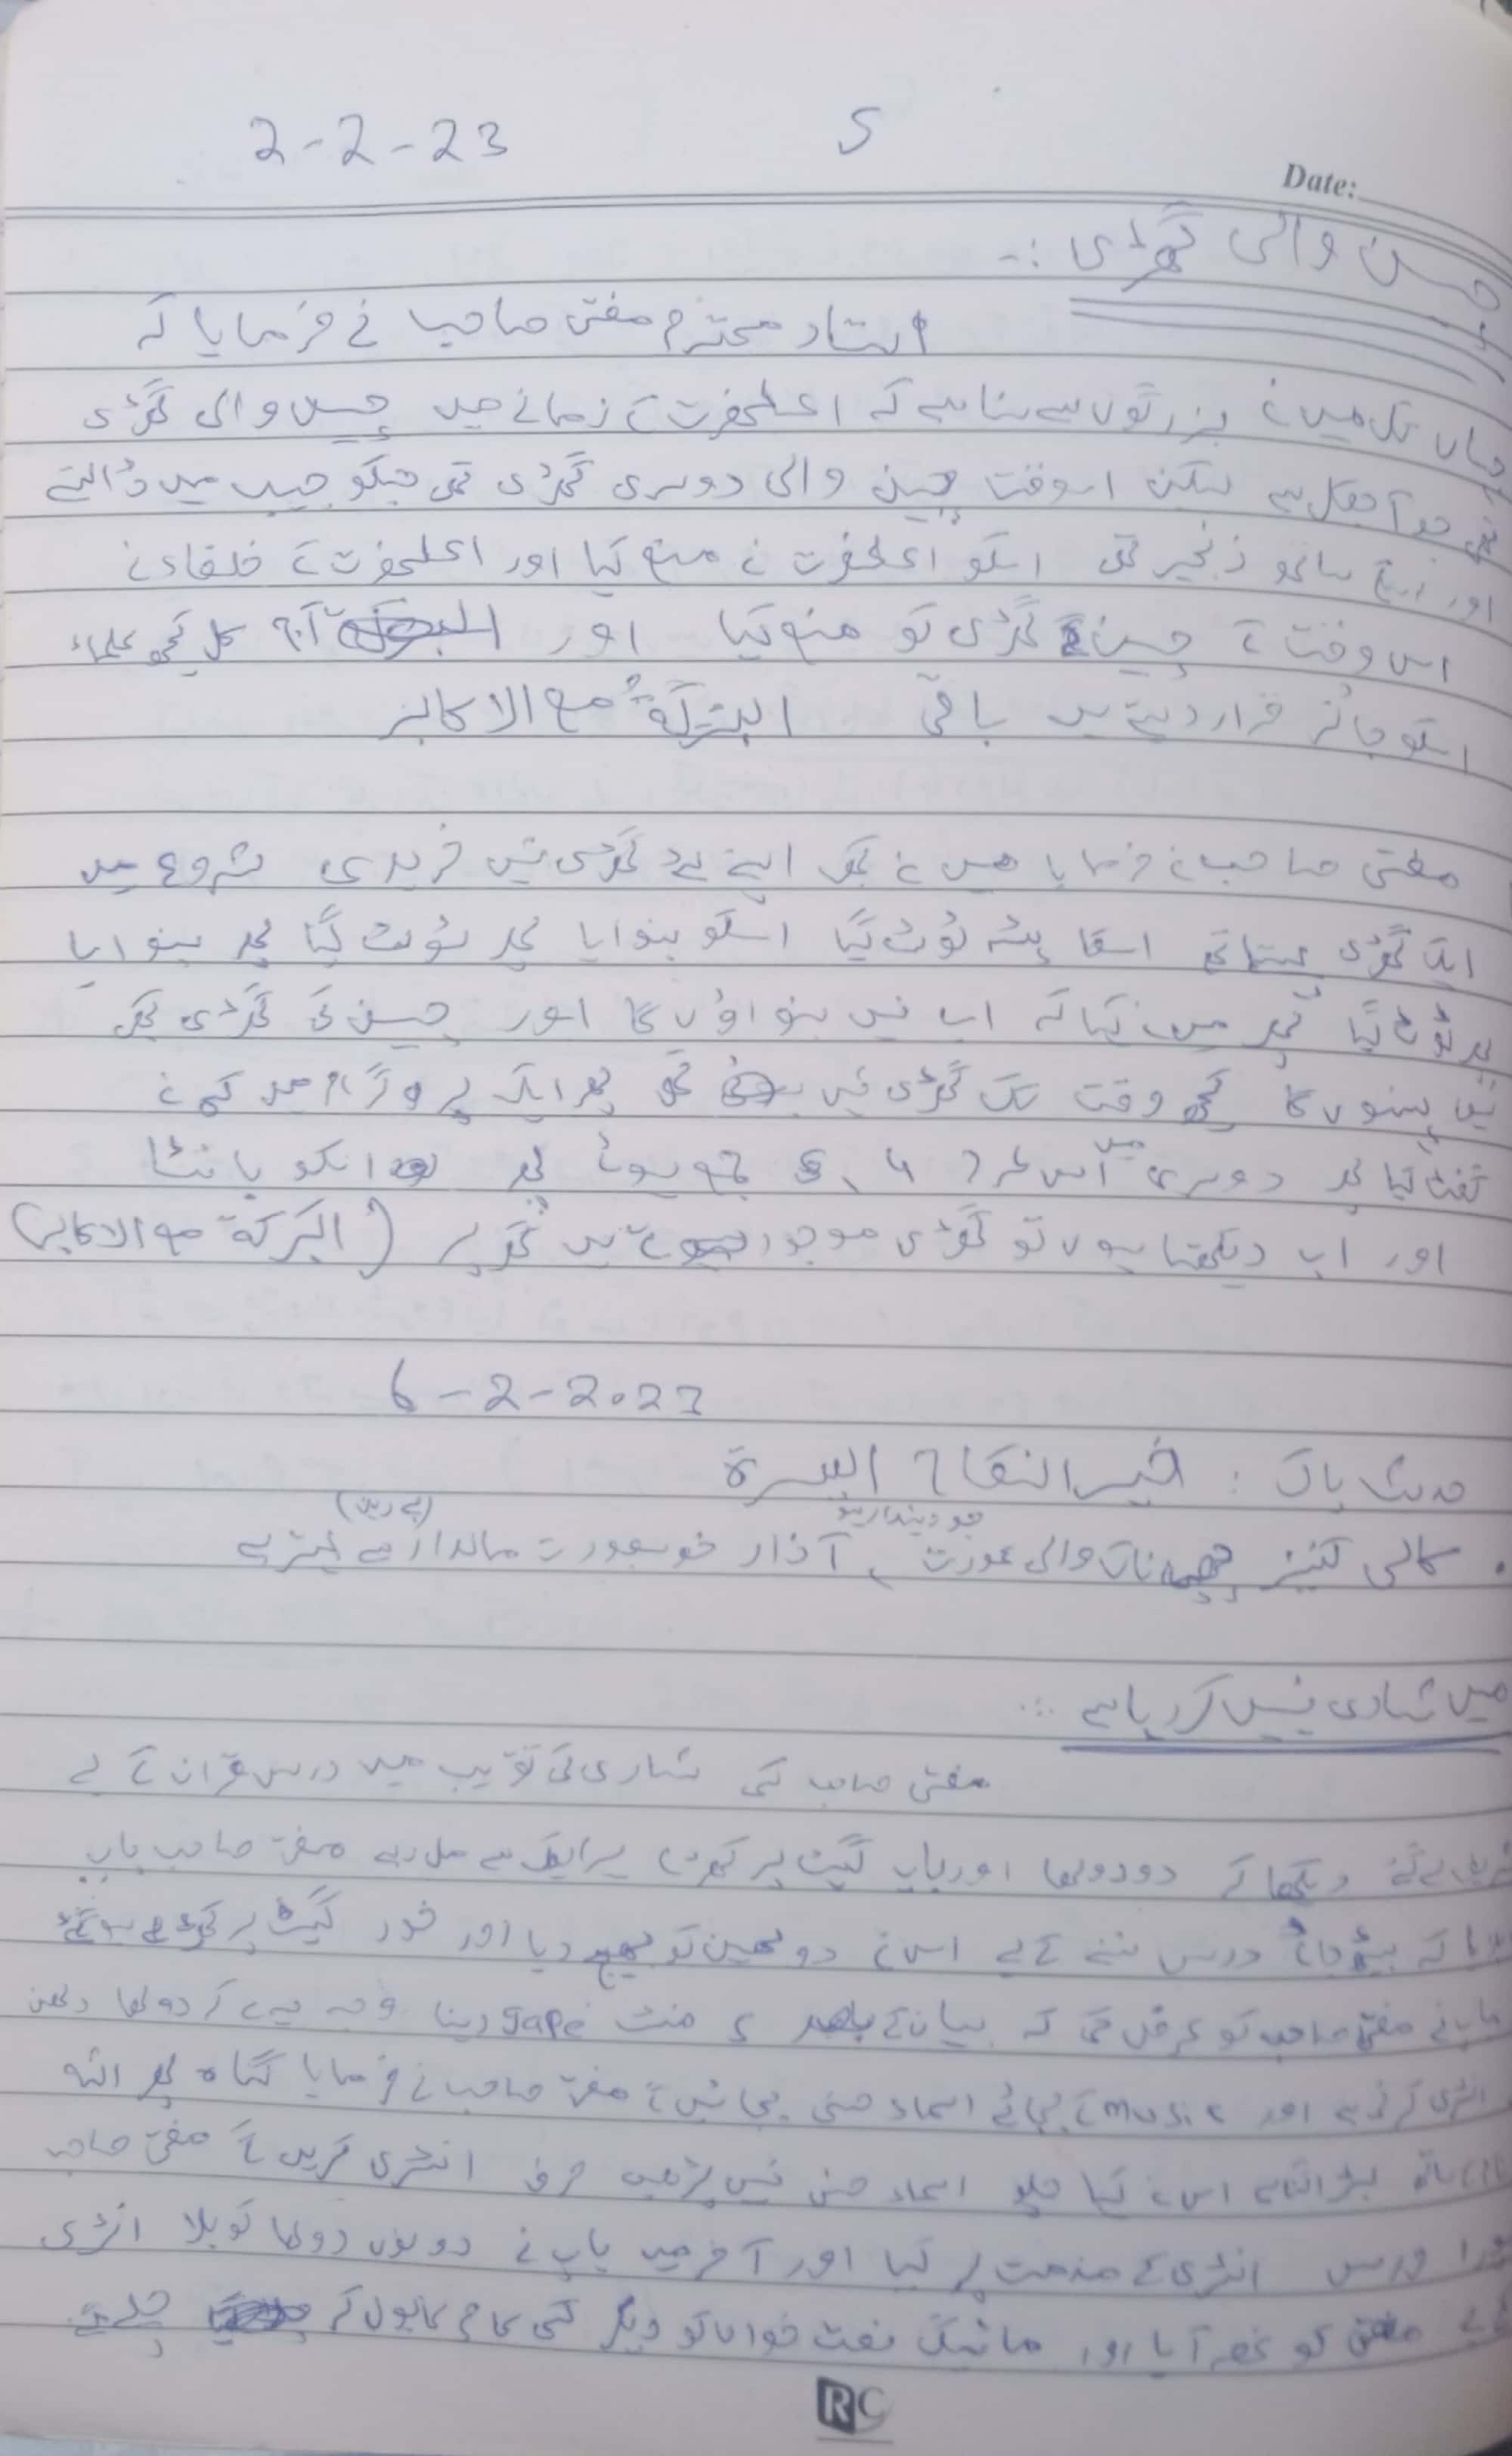 2-2-23 5
Date:
چین والی گھڑی :-
استاد محترم مفتی صاحب نے فرمایا کہ
جہاں تک میں نے بزرگوں سے سنا ہے کہ اعلحضرت کے زمانے میں چین والی گھڑی
تھی جو آجکل ہے لیکن اسوقت چین والی دوسری گھڑی تھی جسکو جیب میں ڈالتے
اور ساتھ زنجیر تھی اسکو اعلحضرت نے منع کیا اور اعلحضرت کے خلفاء نے
اس وقت کے چین گھڑی کو منع کیا اور آج کل کچھ علماء
اسکو جائز قرار دیتے ہیں باقی البرکۃ مع الاکابر
مفتی صاحب نے فرمایا میں نے کبھی اپنے لیے گھڑی نہیں خریدی شروع میں
ایک گھڑی پہنتا تھا اسکا پٹہ ٹوٹ گیا اسکو بنوایا پھر ٹوٹ گیا پھر بنوایا
پھر ٹوٹ گیا پھر میں نے کہا کہ اب نہیں بنواؤں گا اور چین کی گھڑی بھی
نہیں پہنوں گا کچھ وقت تک گھڑی نہیں تھی پھر ایک پروگرام میں کسی نے
تحفہ کیا پھر دوسری میں اس طرح 4، 5 جمع ہوئے پھر انکو بانٹا
اور اب دیکھتا ہوں تو گھڑی موجود ہیں گھر پر (البرکۃ مع الاکابر)
6-2-2023
حدیث پاک : خیر النکاح الیسرۃ
جو دیندار ہو (بے دین)
. کالی کنیز ناک والی عورت ، آذاد خوبصورت مالدار سے بہتر ہے
میں شادی نہیں کر رہا ہے :-
مفتی صاحب کسی شادی کی تقریب میں درس قرآن کے لے
تشریف لے گئے دیکھا کہ دو دولھا اور باپ گیٹ پر کھڑے ہر ایک سے مل رہے مفتی صاحب باپ
کہ بیٹھ جائے درس سننے کے لیے اس نے دولھن کو بھیج دیا اور خود گیٹ پر کھڑے ہو گئے
باپ نے مفتی صاحب کو عرض کی کہ بیان کے بعد 5 منٹ gape دینا وجہ یہ ہے کہ دولھا دلھن
انٹری کرنی ہے اور music کے بجائے اسماء حسنی بجائیں گے مفتی صاحب نے فرمایا گناہ پھر اللہ
بڑا گناہ ہے اس نے کہا چلو اسماء حسنی نہیں پڑھیں صرف انٹری کریں گے مفتی صاحب
پورا درس انٹری کے مذمت پر کیا اور آخر میں باپ نے دونوں دولھا کو بلا انٹری
مفتی کو غصہ آیا اور مائیک نعت خواں کو دیکر کسی کام کا بول کر چلے گئے
RC